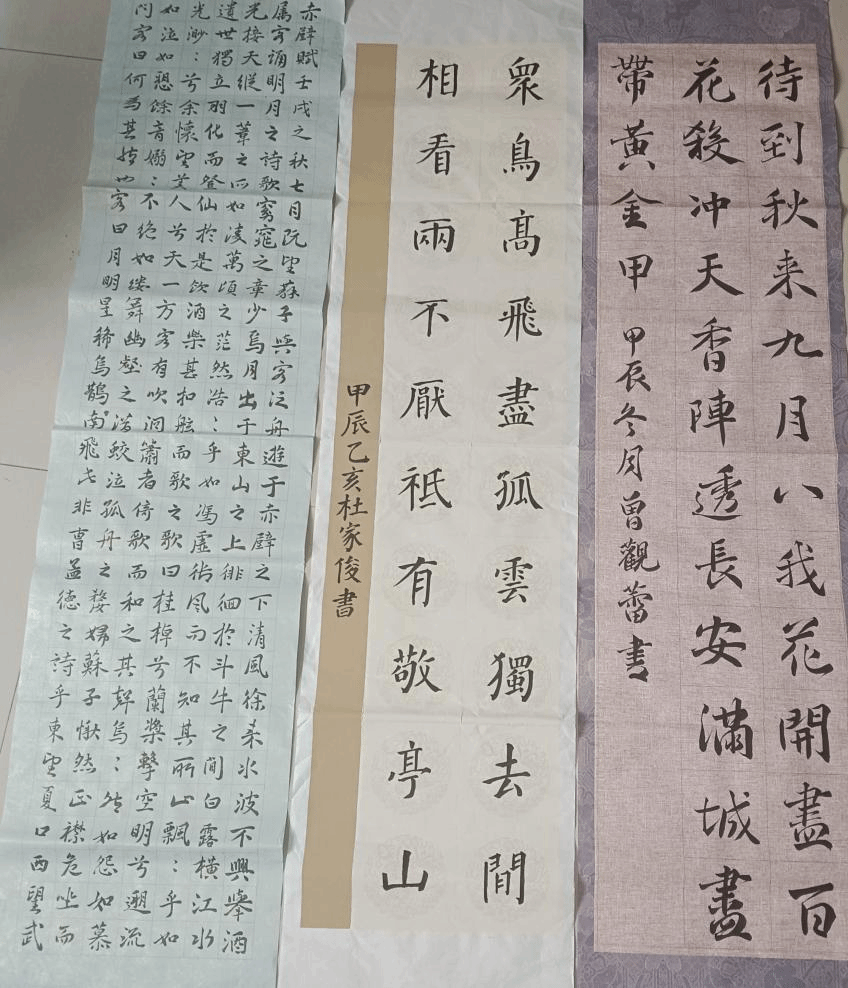 待到秋来九月八我花開盡百
花殺冲天香陣透長安滿城盡
帶黃金甲
甲辰冬月曾觀蕾書
眾鳥髙飛盡孤雲獨去間
相看兩不厭祗有敬亭山
甲辰乙亥杜家俊書
赤壁賦壬戌之秋七月既望蘇子與客泛舟遊于赤壁之下清風徐来水波不興舉酒
属客诵明月之詩歌窈窕之章少焉月出于東山之上徘徊於斗牛之間白露橫江水
光接天縱一葦之所如凌萬頃之茫然浩:乎如馮虛御風而不知其所止飄:乎如
遺世獨立羽化而登仙於是飲酒樂甚扣舷而歌之歌曰桂棹兮蘭槳擊空明兮遡流
光渺:兮余懷望美人兮天一方客有吹洞簫者倚歌而和之其聲烏:然如怨如慕
如泣如愬餘音嫋:不絕如縷舞幽壑之潛蛟泣孤舟之嫠婦蘇子愀然正襟危坐而
问客曰何為其然也客曰月明星稀烏鵲南飛此非曹孟德之詩乎東望夏口西望武